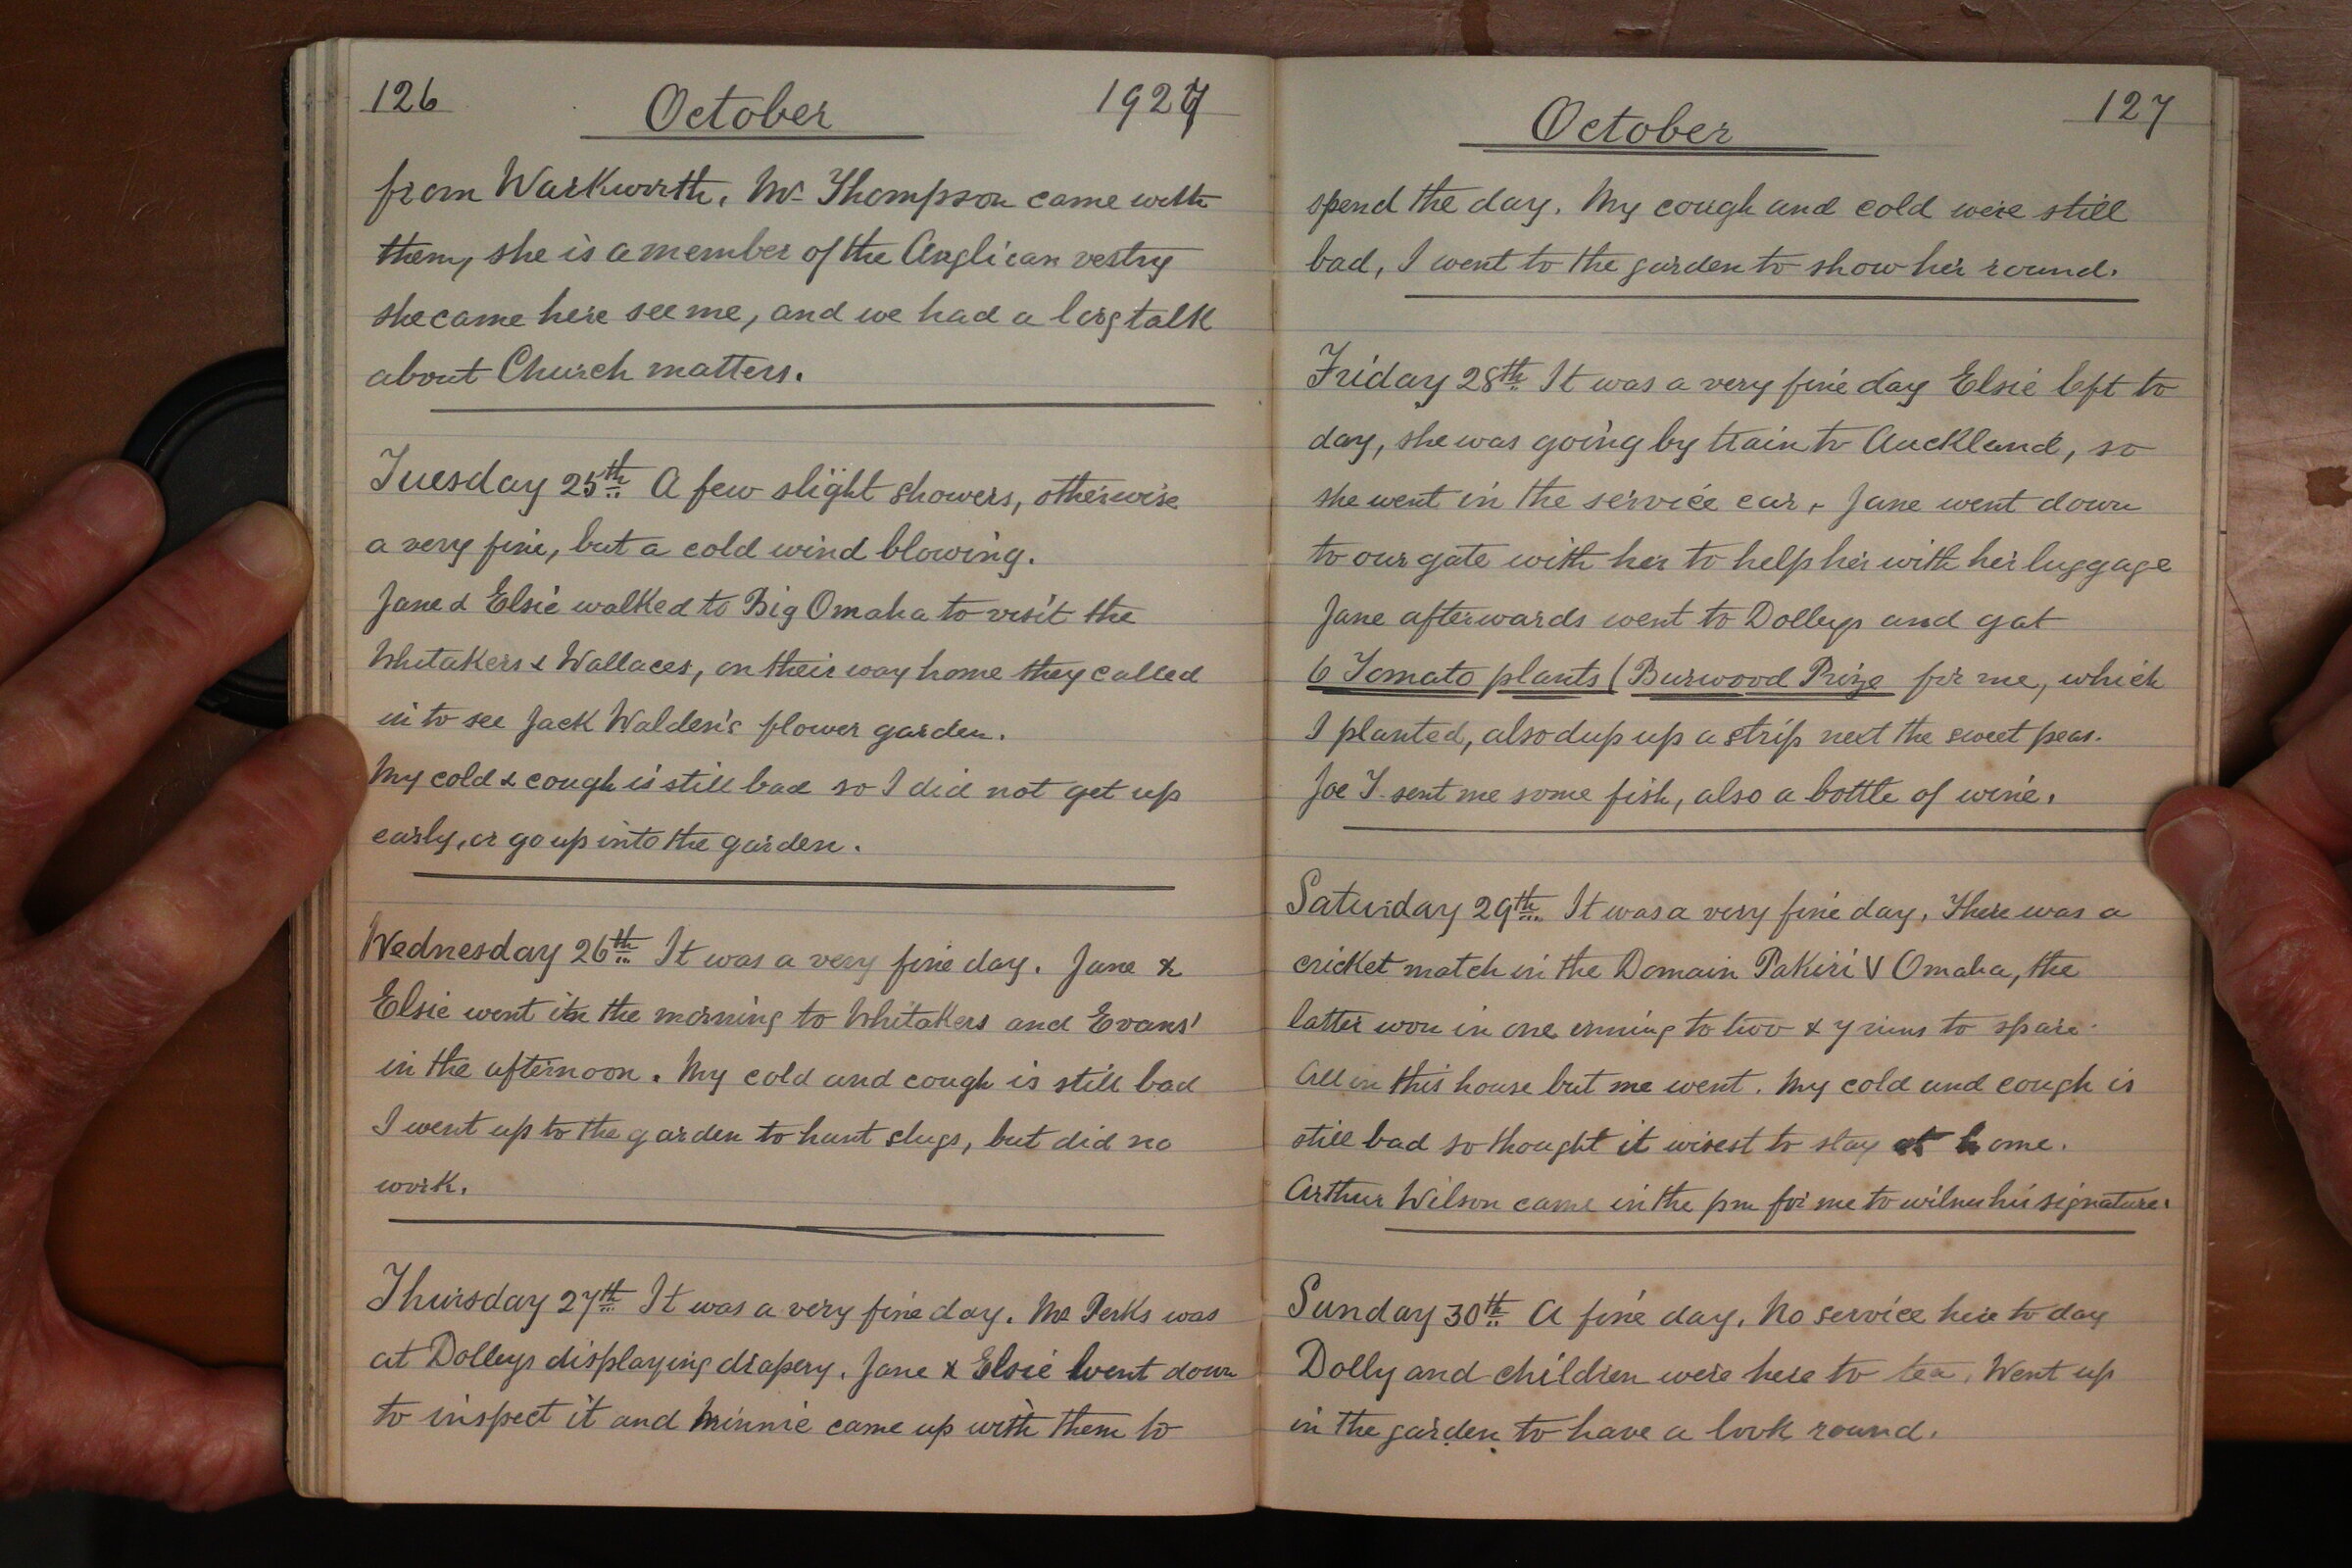 126 October 1927
from Warkworth, Mrs Thompson came with
them, she is a member of the Anglican vestry
she came here see me, and we had a long talk
about Church matters.
Tuesday 25th A few slight showers, otherwise
a very fine, but a cold wind blowing.
Jane & Elsie walked to Big Omaha to visit the
Whitakers & Wallaces, on their way home they called
in to see Jack Walden's flower garden.
My cold & cough is still bad so I did not get up
early, or go up into the garden.
Wednesday 26th It was a very fine day. Jane &
Elsie went in the morning to Whitakers and Evans'
in the afternoon. My cold and cough is still bad
I went up to the garden to hunt slugs, but did no
work.
Thursday 27th It was a very fine day. Mr Perks was
at Dollys displaying drapery. Jane & Elsie went down
to inspect it and Minnie came up with them to
October 127
spend the day. My cough and cold were still
bad, I went to the garden to show her round.
Friday 28th It was a very fine day Elsie left to
day, she was going by train to Auckland, so
she went in the service car, Jane went down
to our gate with her to help her with her luggage
Jane afterwards went to Dollys and gat
6 Tomato plants (Burwood Prize for me, which
I planted, also dup up a strip next the sweet peas.
Joe T. sent me some fish, also a bottle of wine.
Saturday 29th It was a very fine day. There was a
cricket match in the Domain Pakiri V Omaha, the
latter won in one inning to two & 7 runs to spare.
All in this house but me went. My cold and cough is
still bad so thought it wisest to stay at home.
Arthur Wilson came in the pm for me to witness his signature.
Sunday 30th A fine day. No service here to day
Dolly and children were here to tea. Went up
in the garden to have a look round.